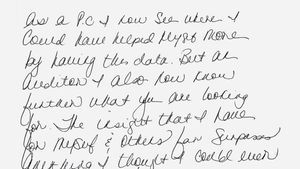 As a PC I now see where I
Could have helped Myself more
by having this data. But an
Auditor I also now know
further what you are looking
for. The insight that I have
for myself & others far surpasses
anything I thought I could ever